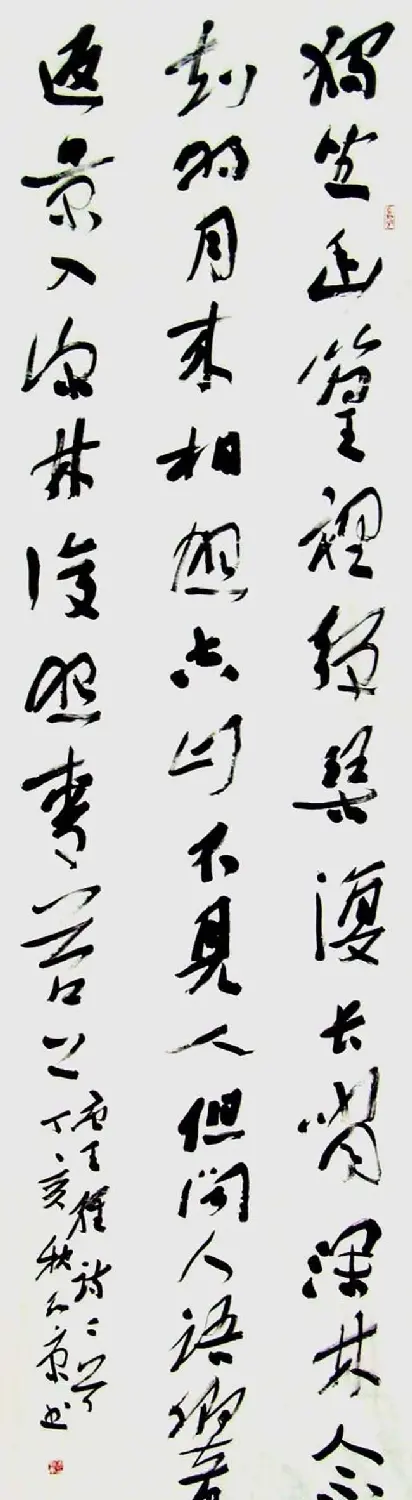 獨坐幽篁裡彈琴復长嘯深林人不
知明月来相照空山不見人但聞人語響
返景入深林復照青苔上
唐王維詩二首
丁亥秋京书